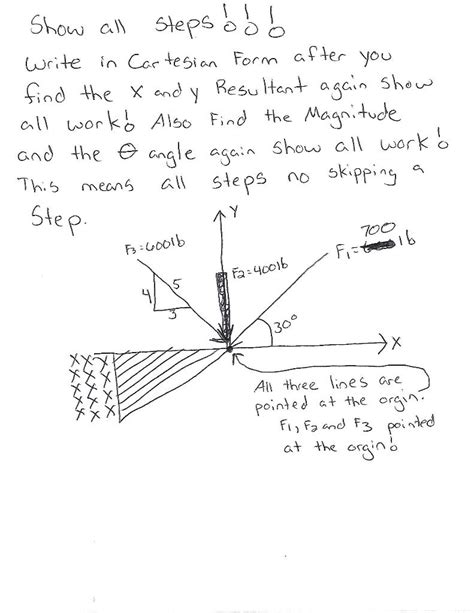 Show all steps!!!
Write in Cartesian Form after you
find the X and y Resultant again show
all work! Also Find the Magnitude
and the θ angle again show all work!
This means all steps no skipping a
Step.
Y
F3=600lb
F2=400lb
700
F1= lb
5
4
3
30°
X
All three lines are
pointed at the orgin.
F1, F2 and F3 pointed
at the orgin!